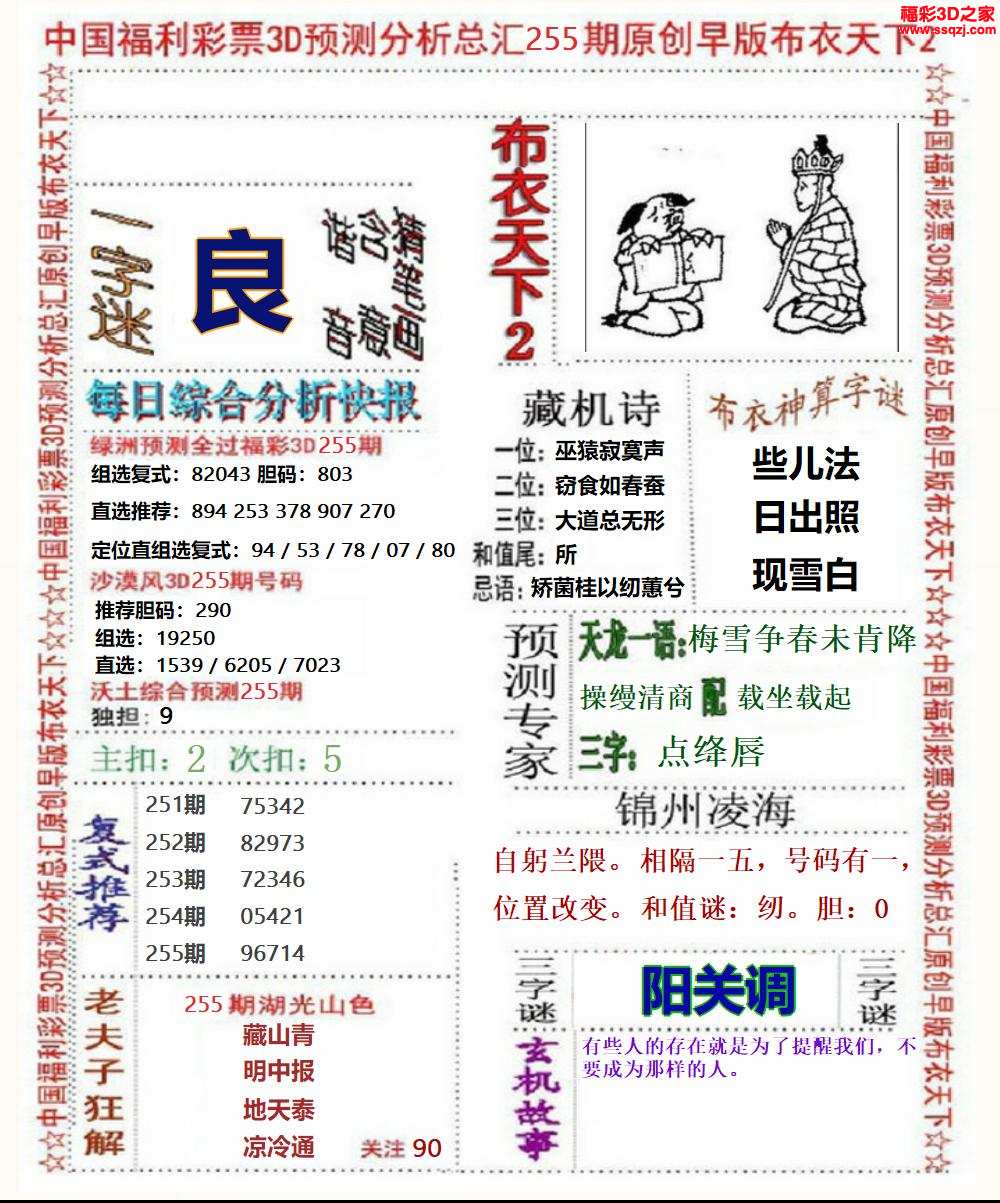 福彩3D之家
www.ssqzj.com
中国福利彩票3D预测分析总汇255期原创早版布衣天下2
☆☆中国福利彩票3D预测分析总汇原创早版布衣天下☆☆☆☆中国福利彩票3D预测分析总汇原创早版布衣天下☆☆
一字迷
良
猜笔画
含意
谐音
布衣天下2
每日综合分析快报
绿洲预测全过福彩3D255期
组选复式：82043 胆码：803
直选推荐：894 253 378 907 270
定位直组选复式：94 / 53 / 78 / 07 / 80
沙漠风3D255期号码
推荐胆码：290
组选：19250
直选：1539 / 6205 / 7023
沃土综合预测255期
独担：9
主扣：2 次扣：5
复式推荐
251期 75342
252期 82973
253期 72346
254期 05421
255期 96714
老夫子狂解
255期湖光山色
藏山青
明中报
地天泰
凉冷通
关注 90
藏机诗
一位：巫猿寂寞声
二位：窃食如春蚕
三位：大道总无形
和值尾：所
忌语：矫菌桂以纫蕙兮
布衣神算字谜
些儿法
日出照
现雪白
预测专家
天龙一语：梅雪争春未肯降
操缦清商 配 载坐载起
三字：点绛唇
锦州凌海
自躬兰隈。相隔一五，号码有一，
位置改变。和值谜：纫。胆：0
三字谜
阳关调
三字谜
玄机故事
有些人的存在就是为了提醒我们，不
要成为那样的人。
☆☆中国福利彩票3D预测分析总汇原创早版布衣天下☆☆☆☆中国福利彩票3D预测分析总汇原创早版布衣天下☆☆